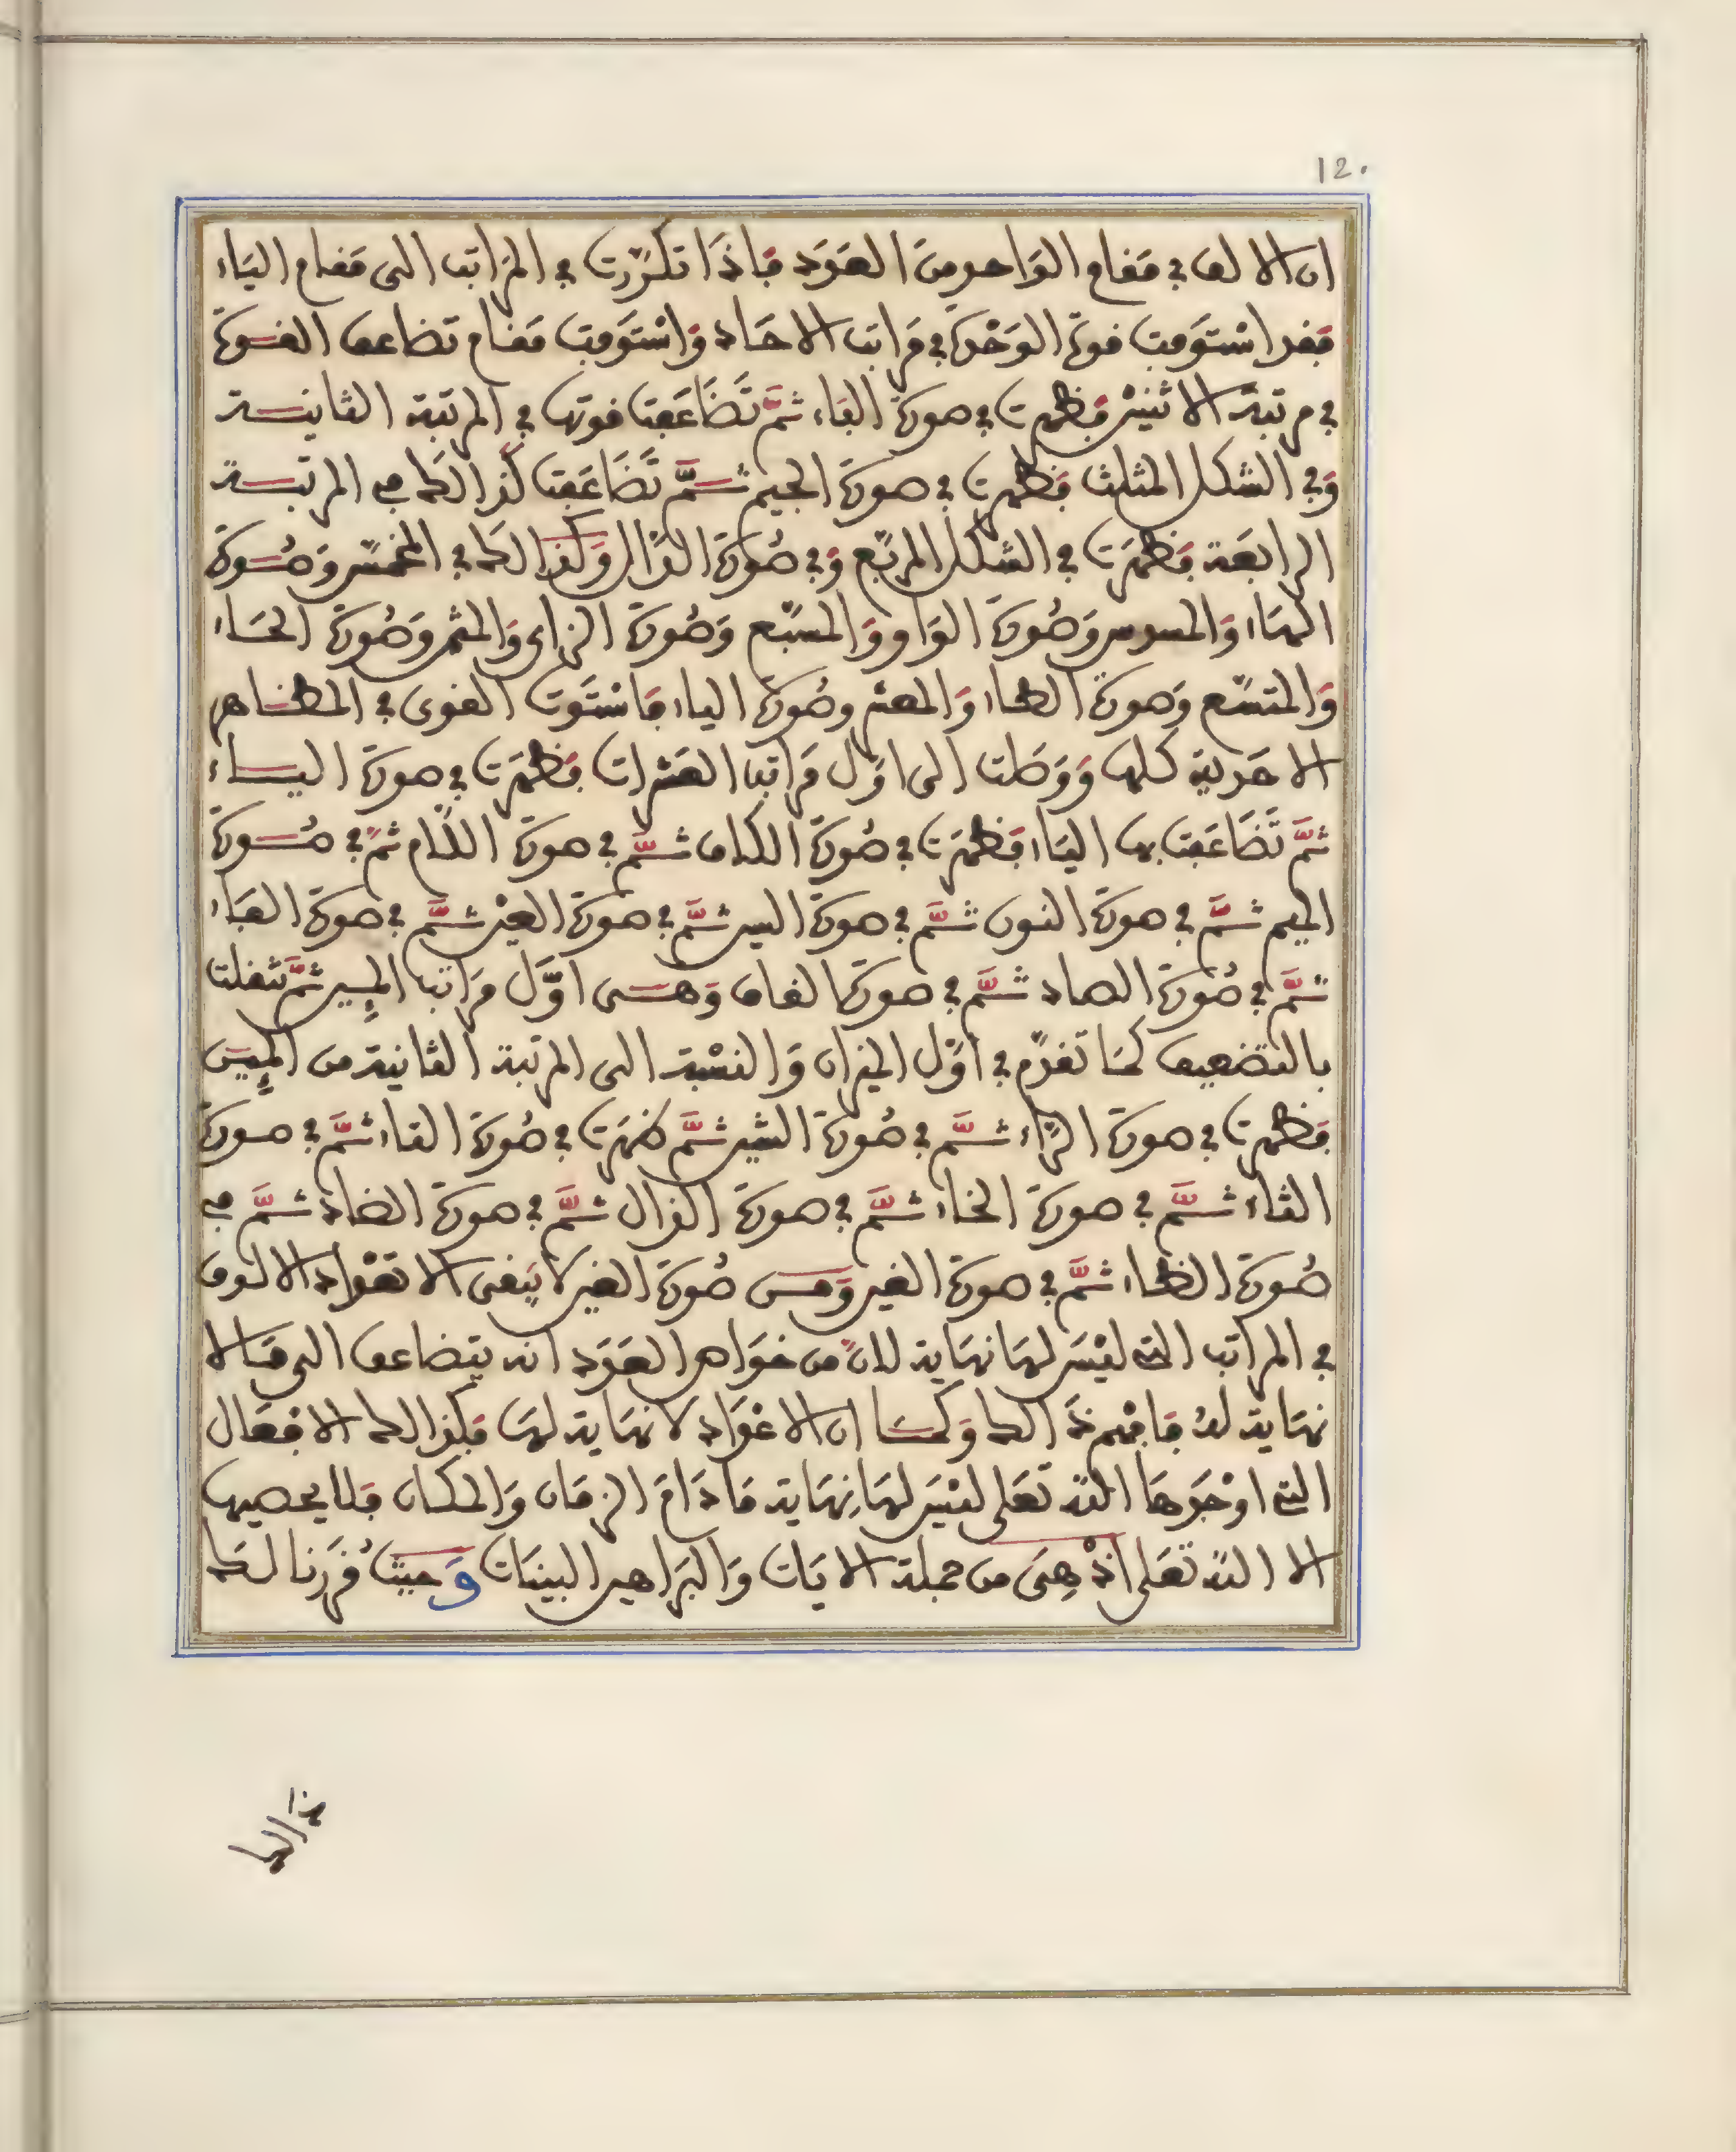 12.
ان الالف في مقام الواحد من العدد فاذا تكررت في المراتب الى مقام الياء
فقد استوفت قوة الوحدة في مراتب الاحاد واستوفت مقام تضاعف القوة
في مرتبة الاثنين فظهرت في صورة الباء ثم تضاعفت قوتها في المرتبة الثانية
وفي الشكل المثلث فظهرت في صورة الجيم ثم تضاعفت كذالك في المرتبة
الرابعة فظهرت في الشكل المربع وفي صورة الدال وكذالك في المخمس وصورة
الهاء والمسدس وصورة الواو والمسبع وصورة الزاي والمثمن وصورة الحاء
والمتسع وصورة الطاء والمعشر وصورة الياء فاستوت القوى في المظاهر
الاحدية كلها ووصلت الى اول مراتب العشرات فظهرت في صورة الياء
ثم تضاعفت بها الياء فظهرت في صورة الكاف ثم في صورة اللام ثم في صورة
الميم ثم في صورة النون ثم في صورة السين ثم في صورة العين ثم في صورة الفاء
ثم في صورة الصاد ثم في صورة القاف وهي اول مراتب المئين ثم تنقلت
بالتضعيف كما تقدم في اول الميزان والنسبة الى المرتبة الثانية من المئين
فظهرت في صورة الراء ثم في صورة الشين ثم ظهرت في صورة التاء ثم في صورة
الثاء ثم في صورة الخاء ثم في صورة الذال ثم في صورة الضاد ثم في
صورة الظاء ثم في صورة الغين ومن صورة الغين لا يبقى الا تعداد الالوف
في المراتب التي ليس لها نهاية لان من خواص العدد انه يتضاعف الى ما لا
نهاية له فافهم ذالك وكما ان الاعداد لا نهاية لها فكذالك الافعال
التي اوجدها الله تعلى ليس لها نهاية ما دام الزمان والمكان فلا يحصيها
الا الله تعلى اذ هي من جملة الايات والبراهين البينات وحيث قررنا لك